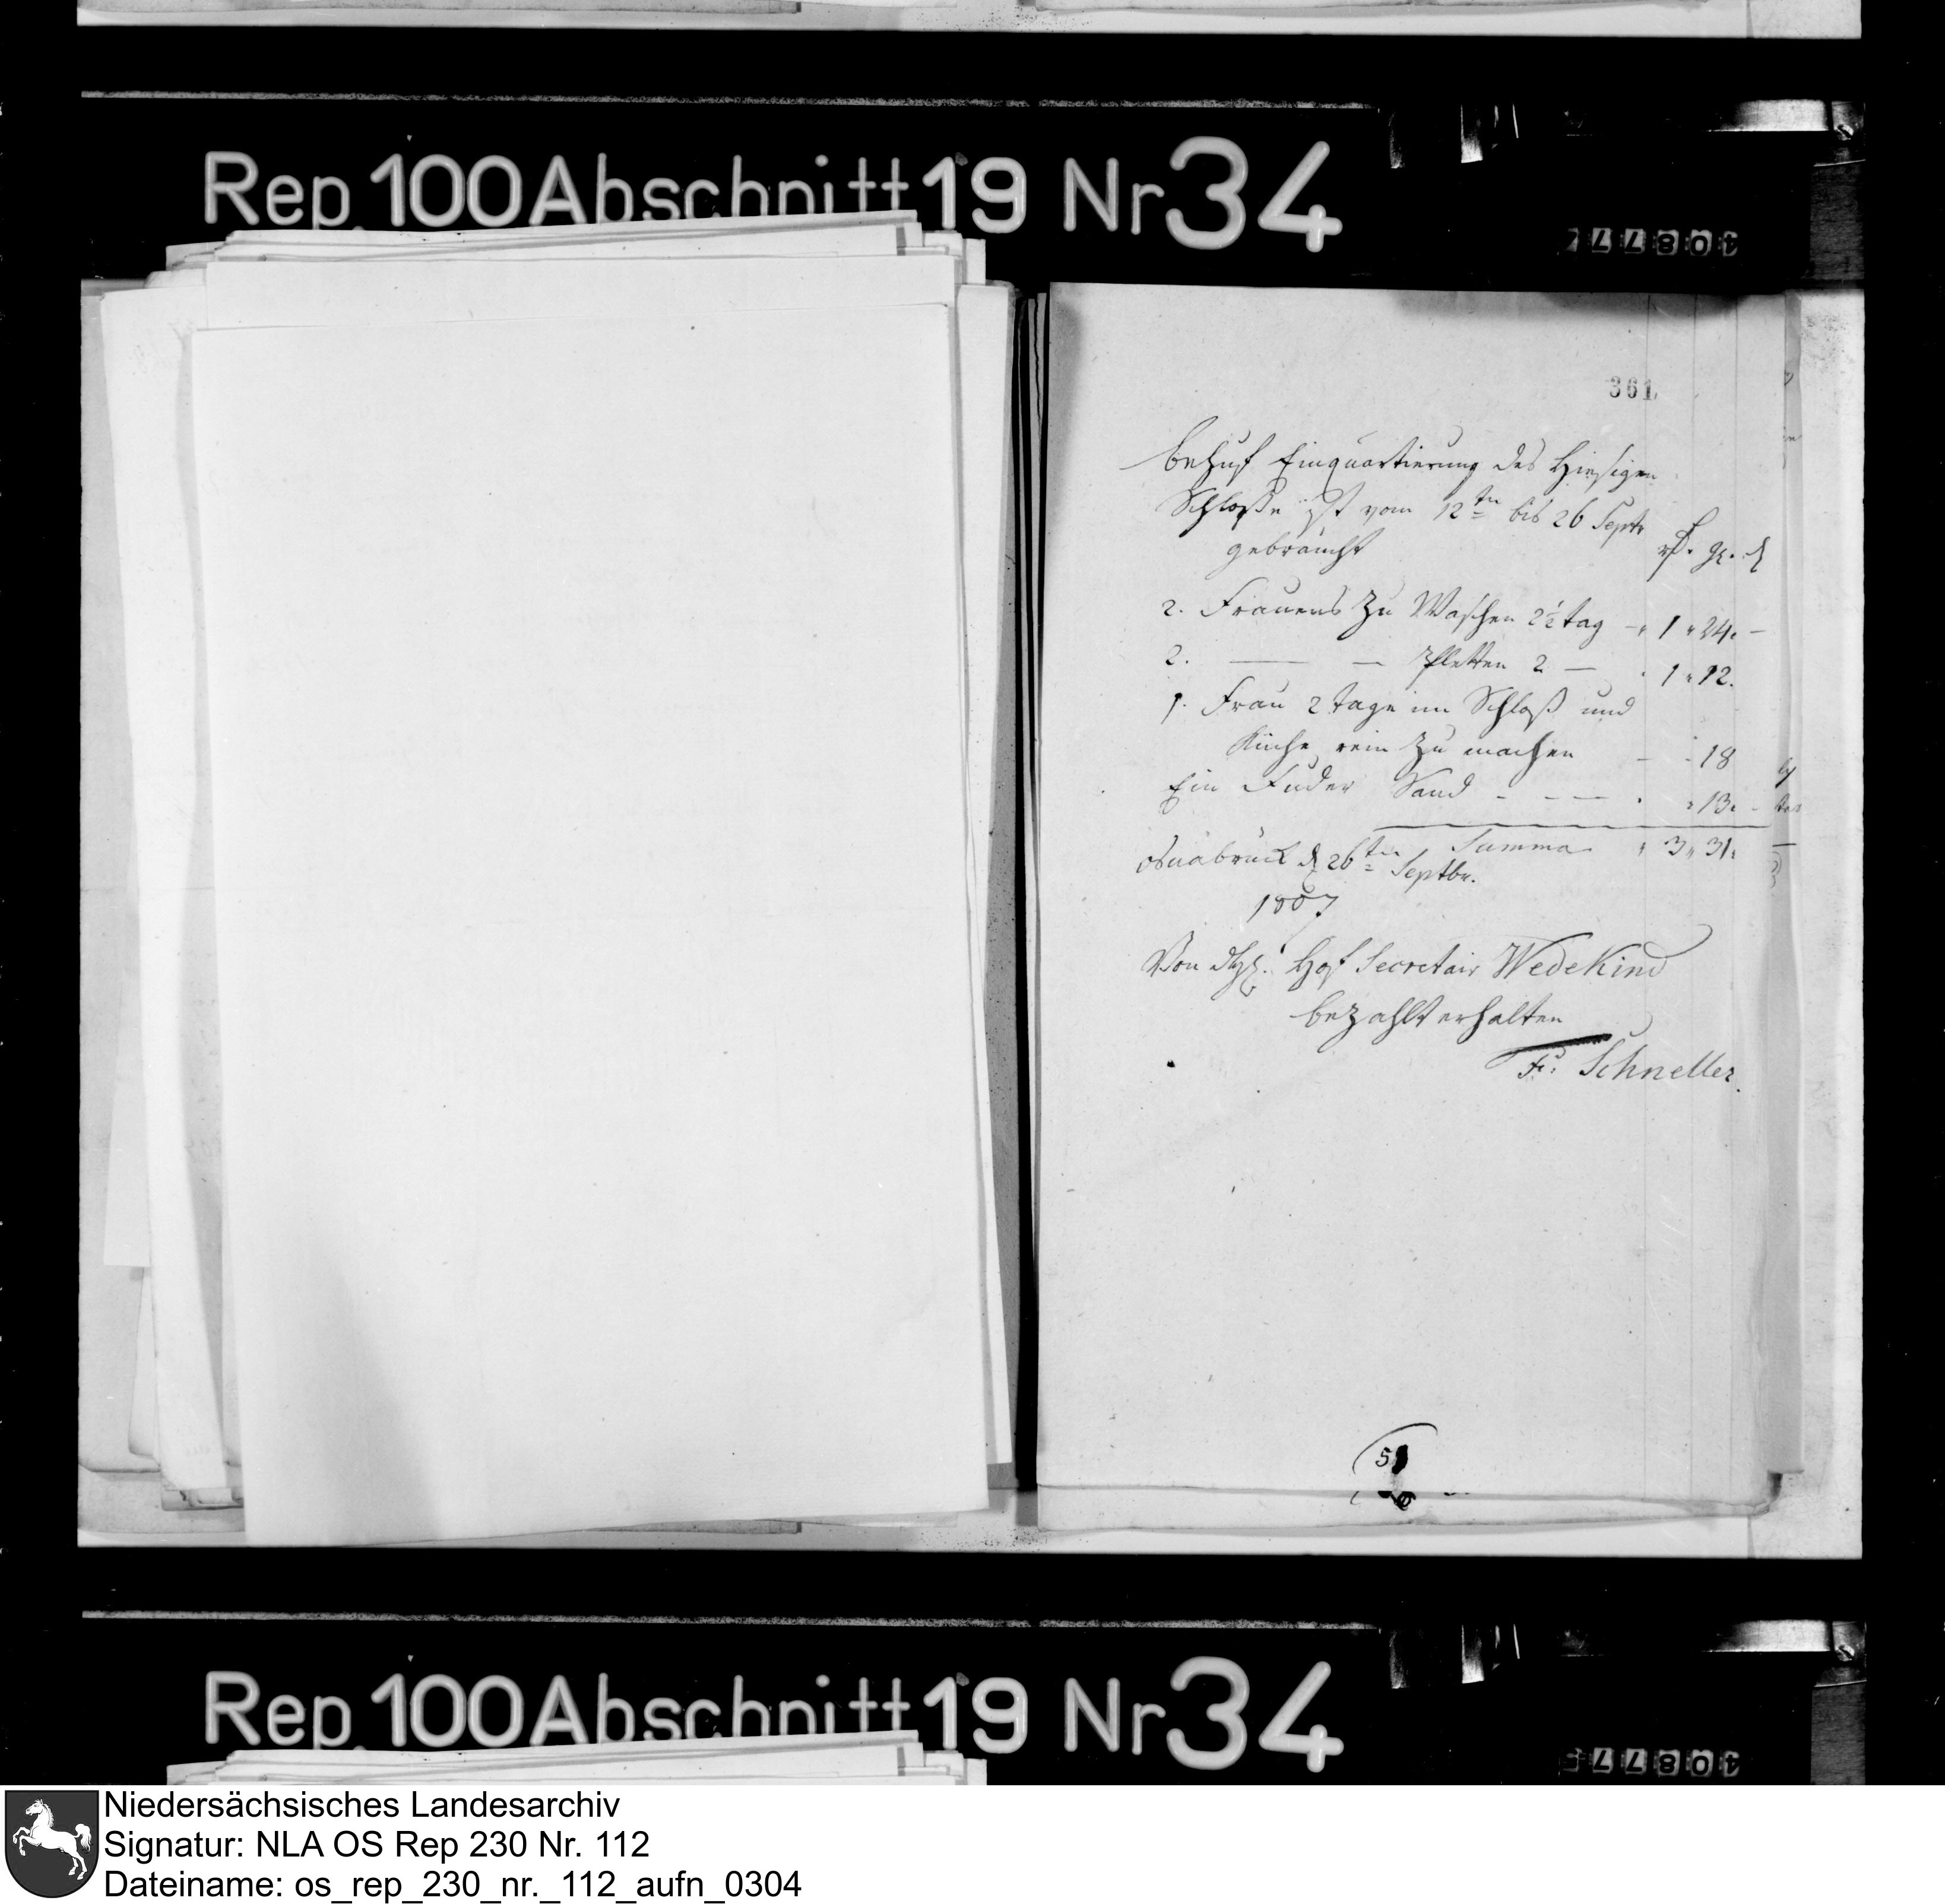 Rep. 100 Abschnitt 19 Nr 34
361
Behuf Einquartierung des Hiesigen
Schloße ist vom 12ten bis 26 Septr
gebraucht
rth. gr. d
2. Frauens zu Waschen 2½ tag - " 1 " 24. -
2. — — Pletten 2 — " 1 " 12.
1. Frau 2 tage im Schloß und
Küche rein zu machen - - 18
Ein Fuder Sand - - — " " 13. -
Summa " 3 " 31.
Osnabrück d 26ten Septbr.
1807
Von H. Hof Secretair Wedekind
bezahlt erhalten
Fr. Schneller.
Rep. 100 Abschnitt 19 Nr 34
Niedersächsisches Landesarchiv
Signatur: NLA OS Rep 230 Nr. 112
Dateiname: os_rep_230_nr._112_aufn_0304